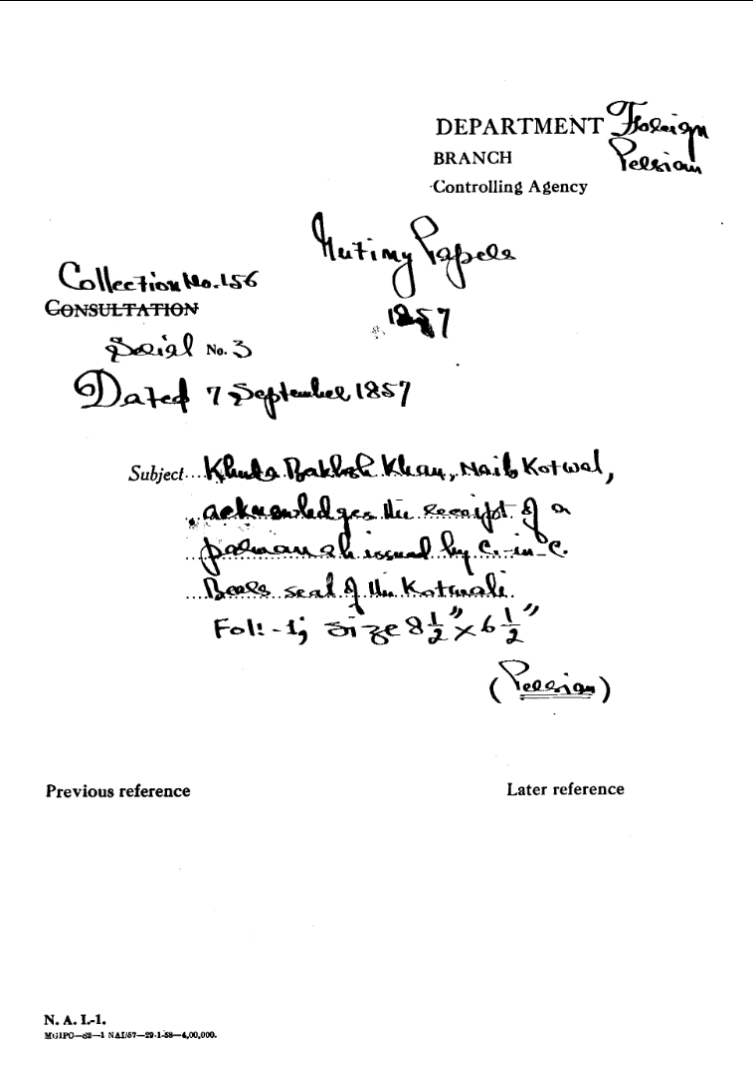 DEPARTMENT Foreign
BRANCH Persian
Controlling Agency
Mutiny Papers
1857
Collection No. 156
CONSULTATION
Serial No. 3
Dated 7 September 1857
Subject... Khuda Bakhsh Khan, Naib Kotwal,
acknowledges the receipt of a
parwanah issued by C.-in-C.
Bears seal of the Kotwali.
Fol: -1; Size 8 1/2" x 6 1/2"
(Persian)
Previous reference Later reference
N. A. I.-1.
MGIPC—S2—1 NAI/57—29-1-58—4,00,000.